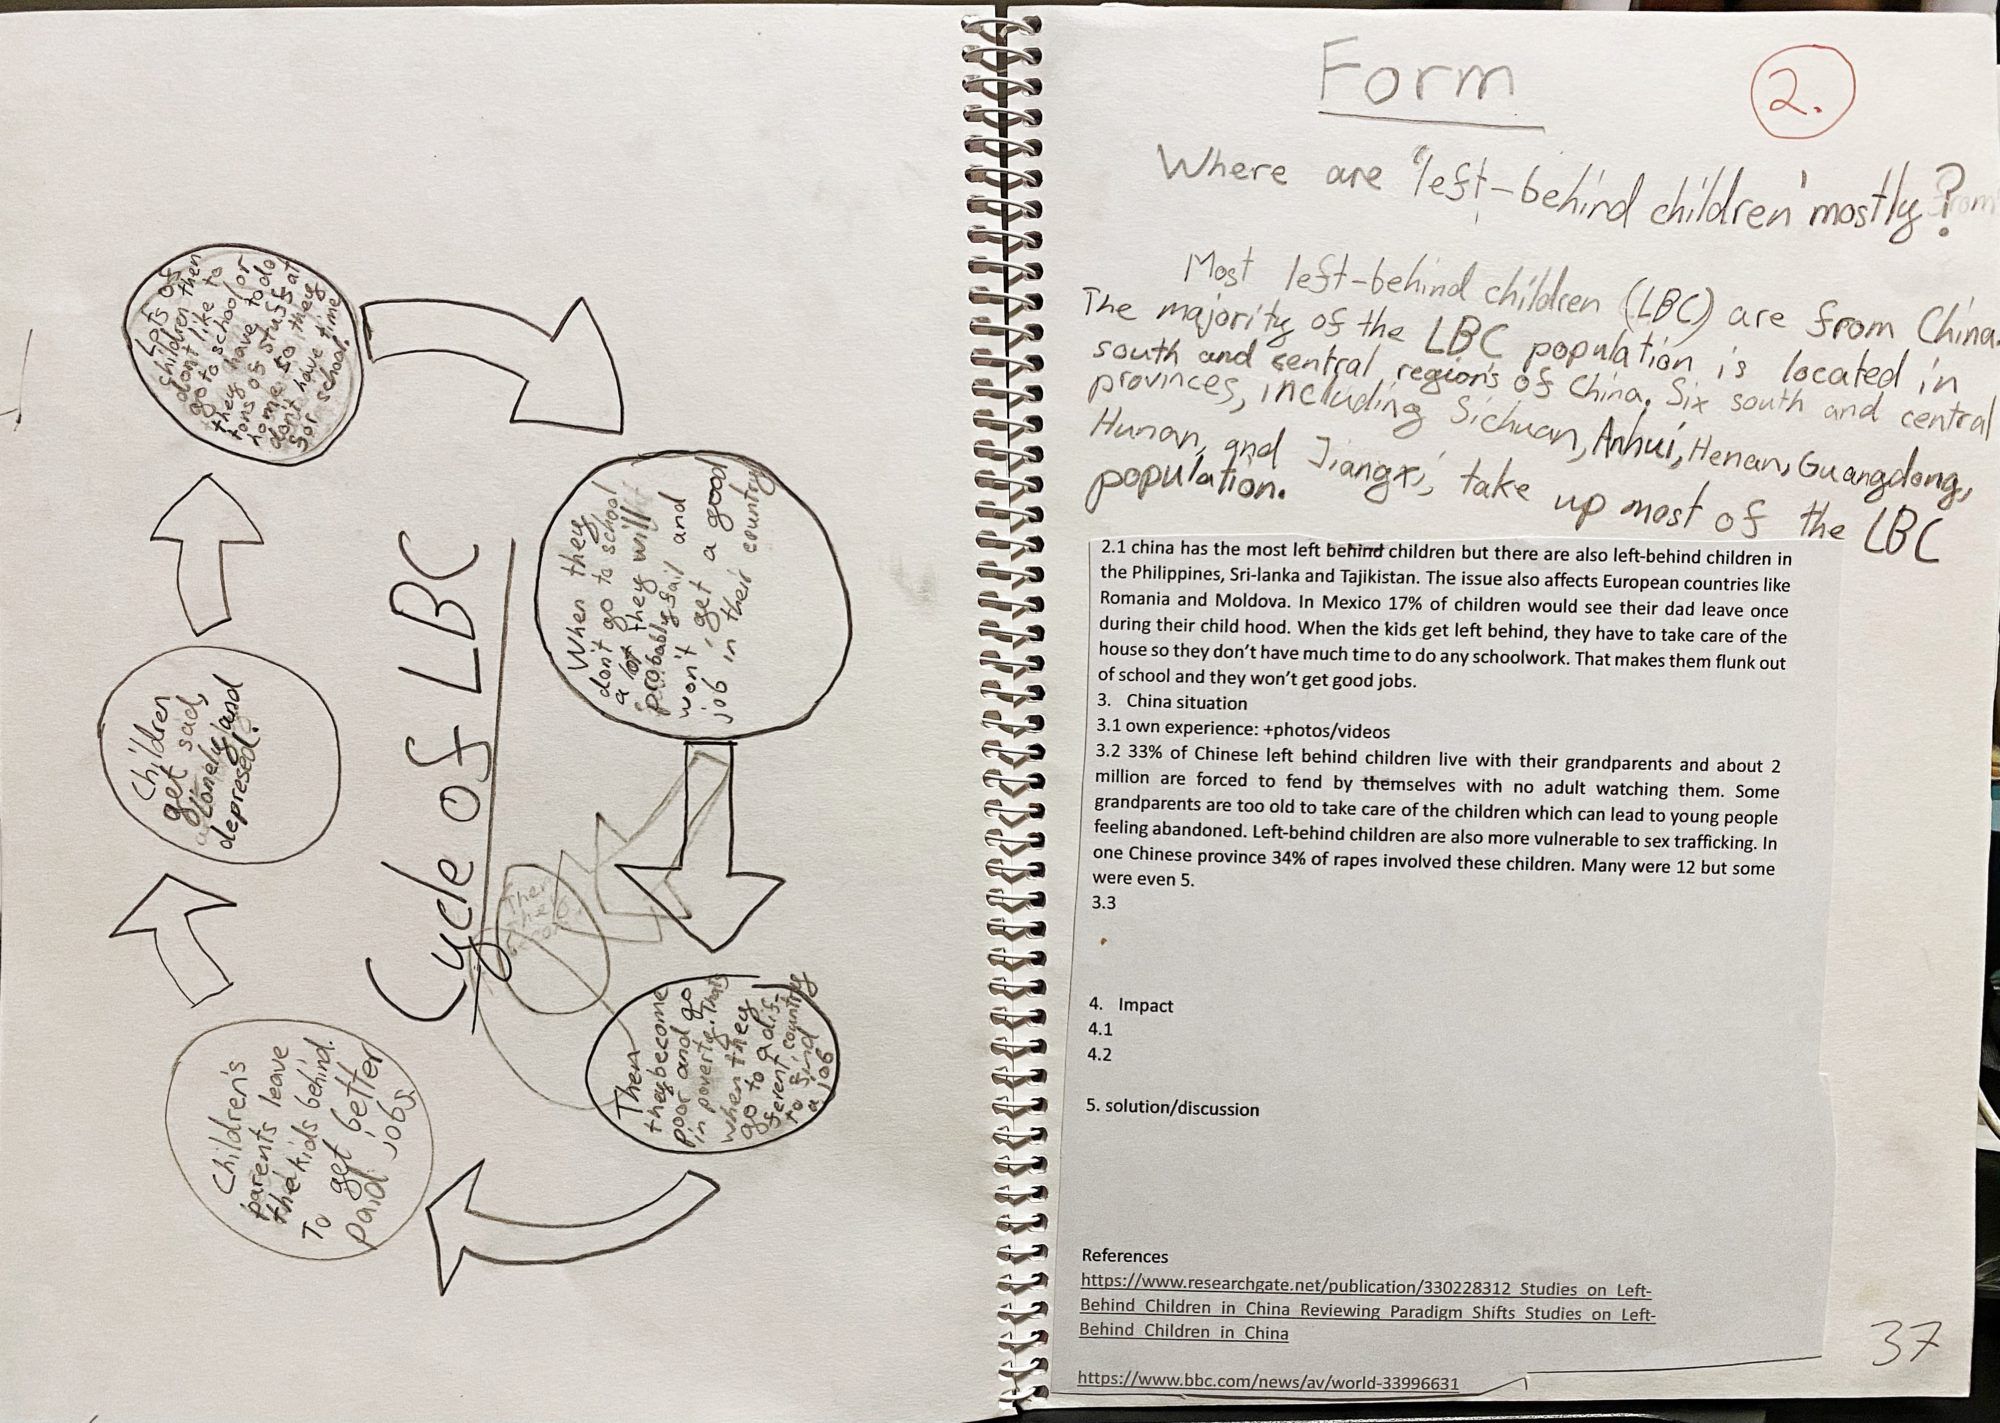 Cycle of LBC
Children's
parents leave
the kids behind.
To get better
paid jobs
Children
get sad,
lonely and
depresed.
Lots of
children then
don't like to
go to school or
they have to do
tons of stuff at
home so they
don't have time
for school.
When they
don't go to school
a lot they will
probably fail and
won't get a good
job in their country
Then
they become
poor and go
in poverty. Thats
when they
go to a dif-
ferent country
to find
a job
Then
they
Form
2.
Where are "left-behind children" mostly?
from
Most left-behind children (LBC) are from China.
The majority of the LBC population is located in
south and central regions of China. Six south and central
provinces, including Sichuan, Anhui, Henan, Guangdong,
Hunan, and Jiangxi, take up most of the LBC
population.
2.1 china has the most left behind children but there are also left-behind children in
the Philippines, Sri-lanka and Tajikistan. The issue also affects European countries like
Romania and Moldova. In Mexico 17% of children would see their dad leave once
during their child hood. When the kids get left behind, they have to take care of the
house so they don't have much time to do any schoolwork. That makes them flunk out
of school and they won't get good jobs.
3. China situation
3.1 own experience: +photos/videos
3.2 33% of Chinese left behind children live with their grandparents and about 2
million are forced to fend by themselves with no adult watching them. Some
grandparents are too old to take care of the children which can lead to young people
feeling abandoned. Left-behind children are also more vulnerable to sex trafficking. In
one Chinese province 34% of rapes involved these children. Many were 12 but some
were even 5.
3.3
4. Impact
4.1
4.2
5. solution/discussion
References
https://www.researchgate.net/publication/330228312_Studies_on_Left-
Behind_Children_in_China_Reviewing_Paradigm_Shifts_Studies_on_Left-
Behind_Children_in_China
https://www.bbc.com/news/av/world-33996631
37